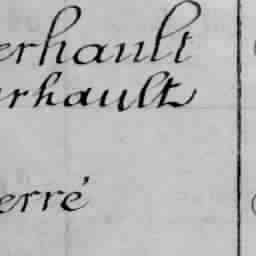 erhault
urhault
erré